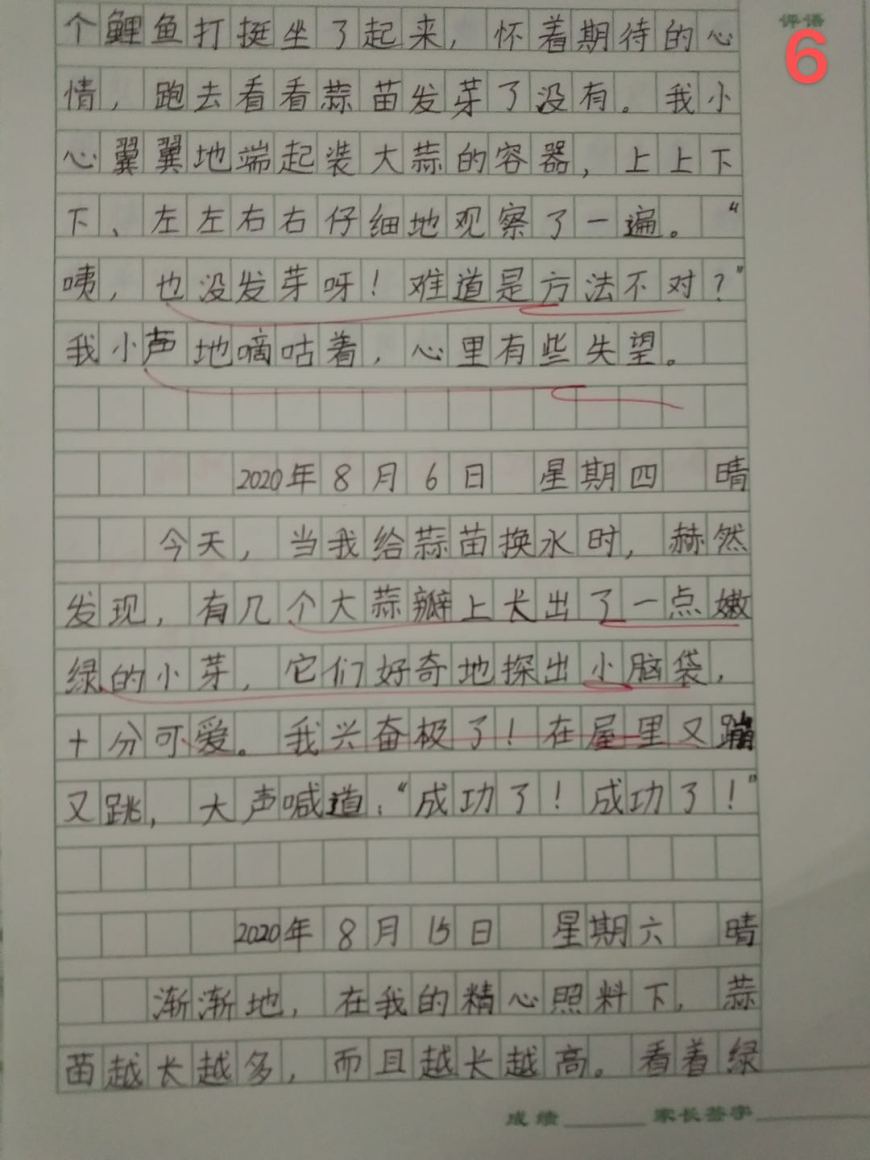 评语
6
个鲤鱼打挺坐了起来，怀着期待的心
情，跑去看看蒜苗发芽了没有。我小
心翼翼地端起装大蒜的容器，上上下
下、左左右右仔细地观察了一遍。“
咦，也没发芽呀！难道是方法不对？”
我小声地嘀咕着，心里有些失望。
2020年8月6日 星期四 晴
今天，当我给蒜苗换水时，赫然
发现，有几个大蒜瓣上长出了一点嫩
绿的小芽，它们好奇地探出小脑袋，
十分可爱。我兴奋极了！在屋里又蹦
又跳，大声喊道：“成功了！成功了！”
2020年8月15日 星期六 晴
渐渐地，在我的精心照料下，蒜
苗越长越多，而且越长越高。看着绿
成绩 家长签字